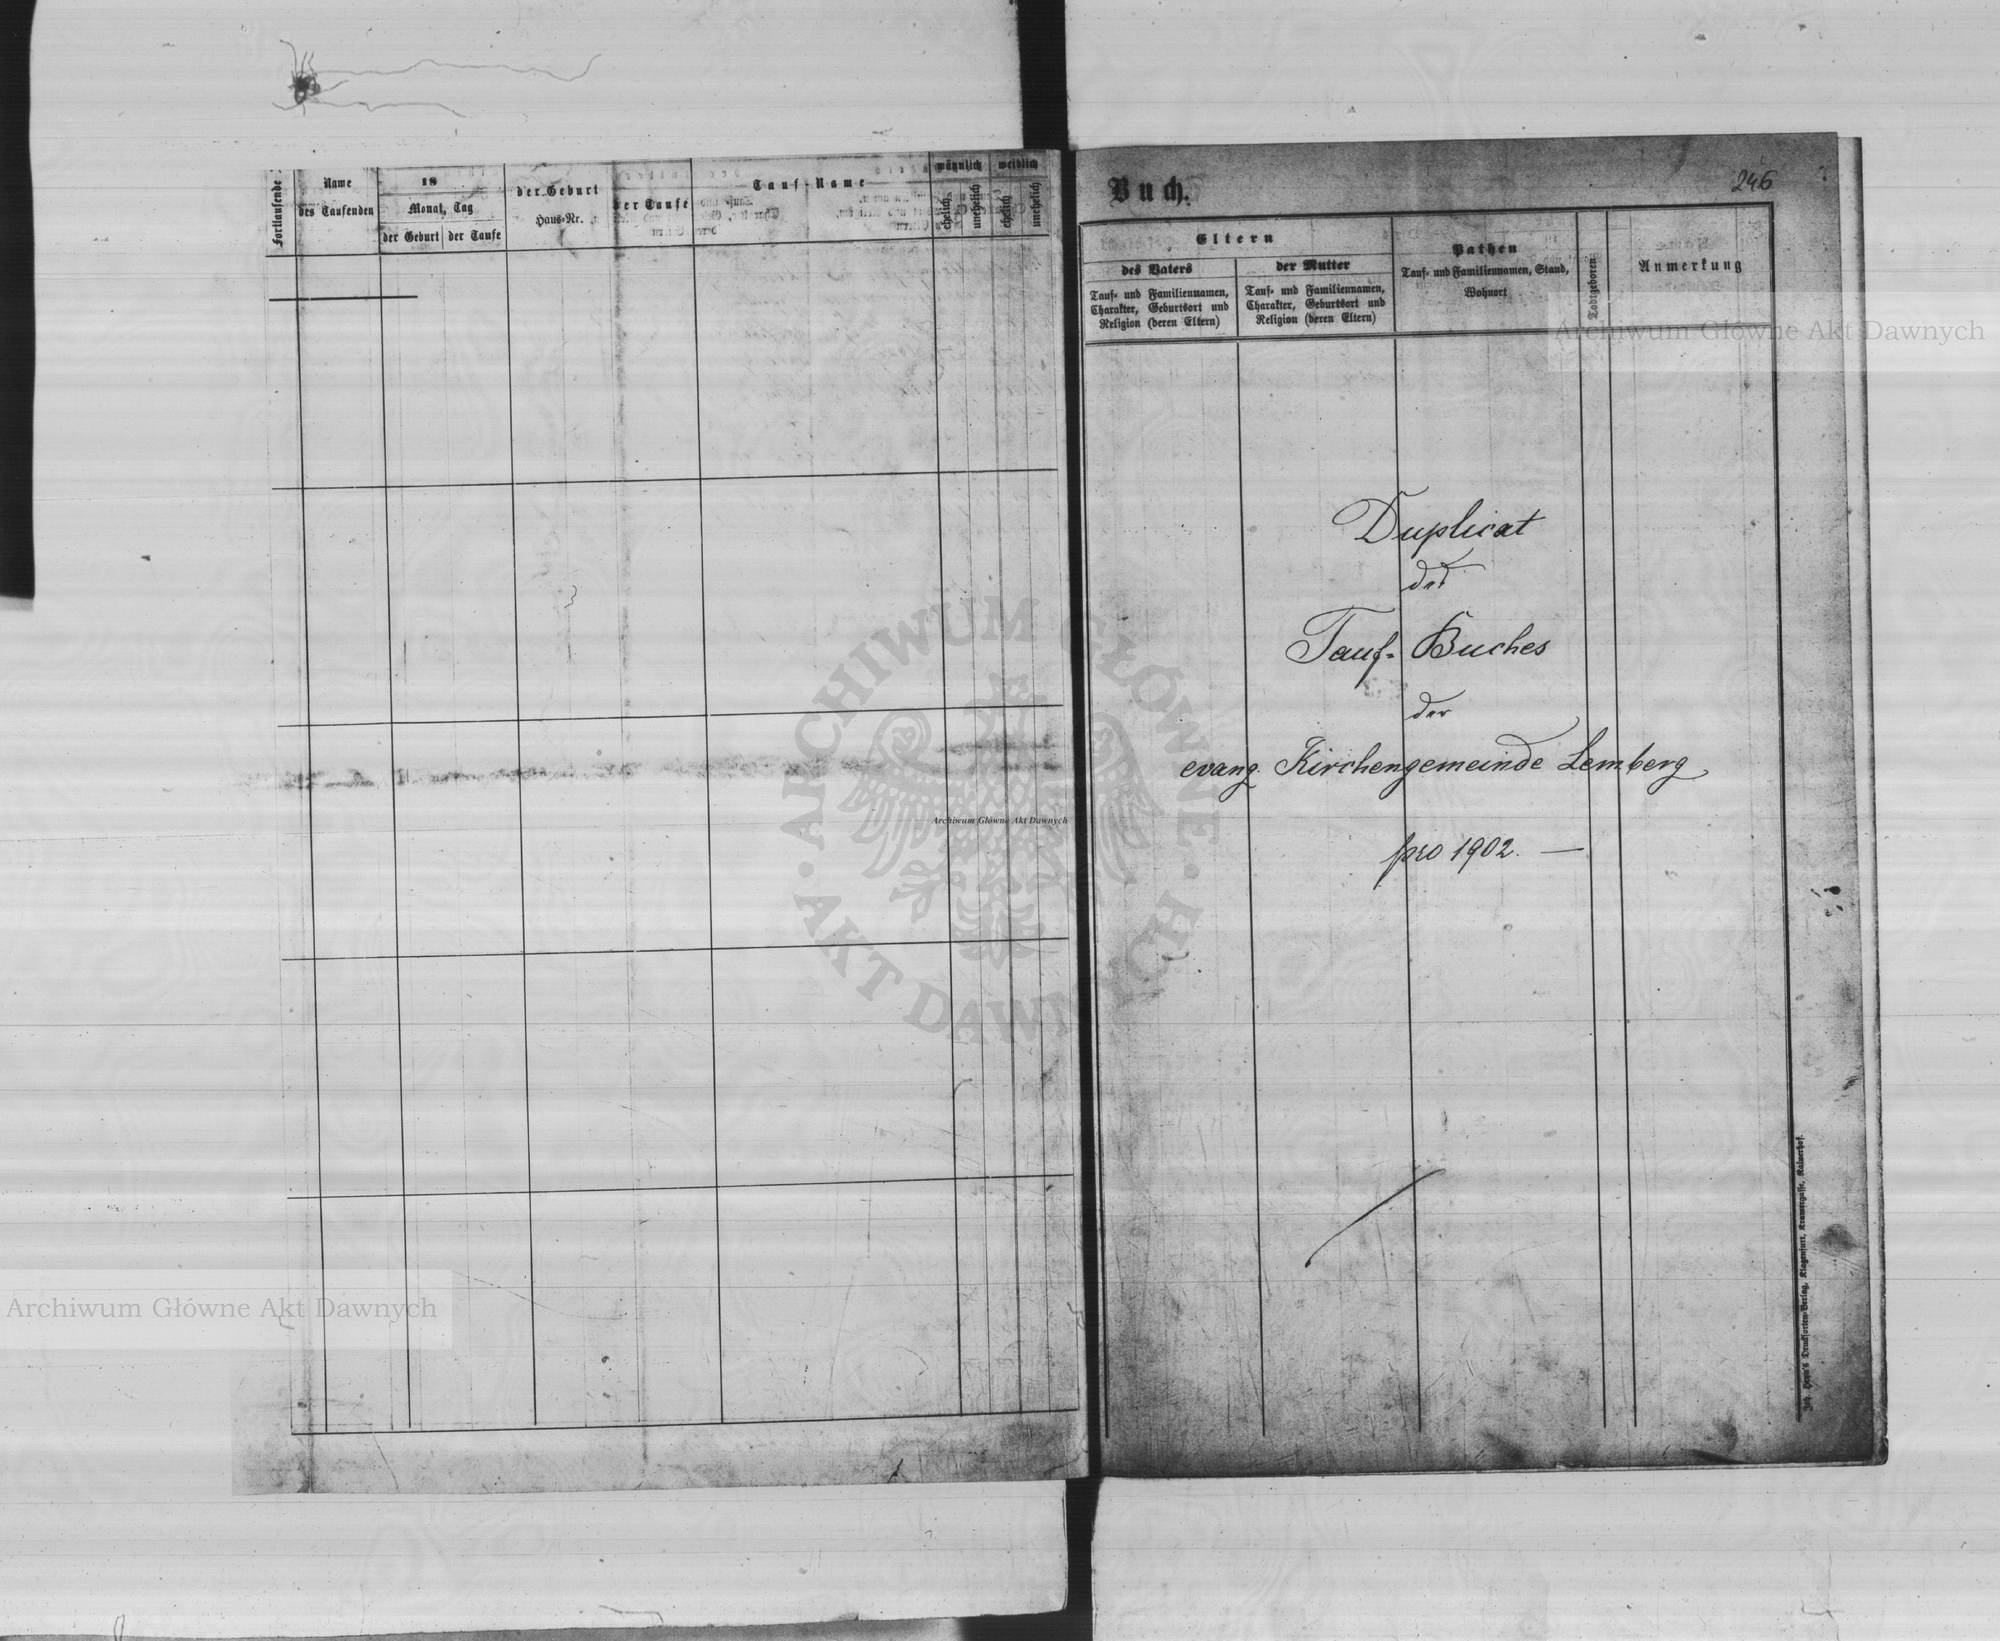 Fortlaufende
Name
des Taufenden
18
Monat, Tag
der Geburt
der Taufe
der Geburt
Haus-Nr.
der Taufe
Tauf-Name
männlich
weiblich
ehelich
unehelich
ehelich
unehelich
Buch.
246
Eltern
des Vaters
Tauf- und Familiennamen,
Charakter, Geburtsort und
Religion (deren Eltern)
der Mutter
Tauf- und Familiennamen,
Charakter, Geburtsort und
Religion (deren Eltern)
Pathen
Tauf- und Familiennamen, Stand,
Wohnort
Todtgeboren
Anmerkung
Duplicat
des
Tauf- Buches
der
evang. Kirchengemeinde Lemberg
pro 1902. —
Joh. Drucksorten-Verlag, Klagenfurt, Kramergasse, Kaiserhof.
Archiwum Główne Akt Dawnych
ARCHIWUM GŁÓWNE · H
· AKT DAWNYCH
Archiwum Główne Akt Dawnych
Archiwum Główne Akt Dawnych